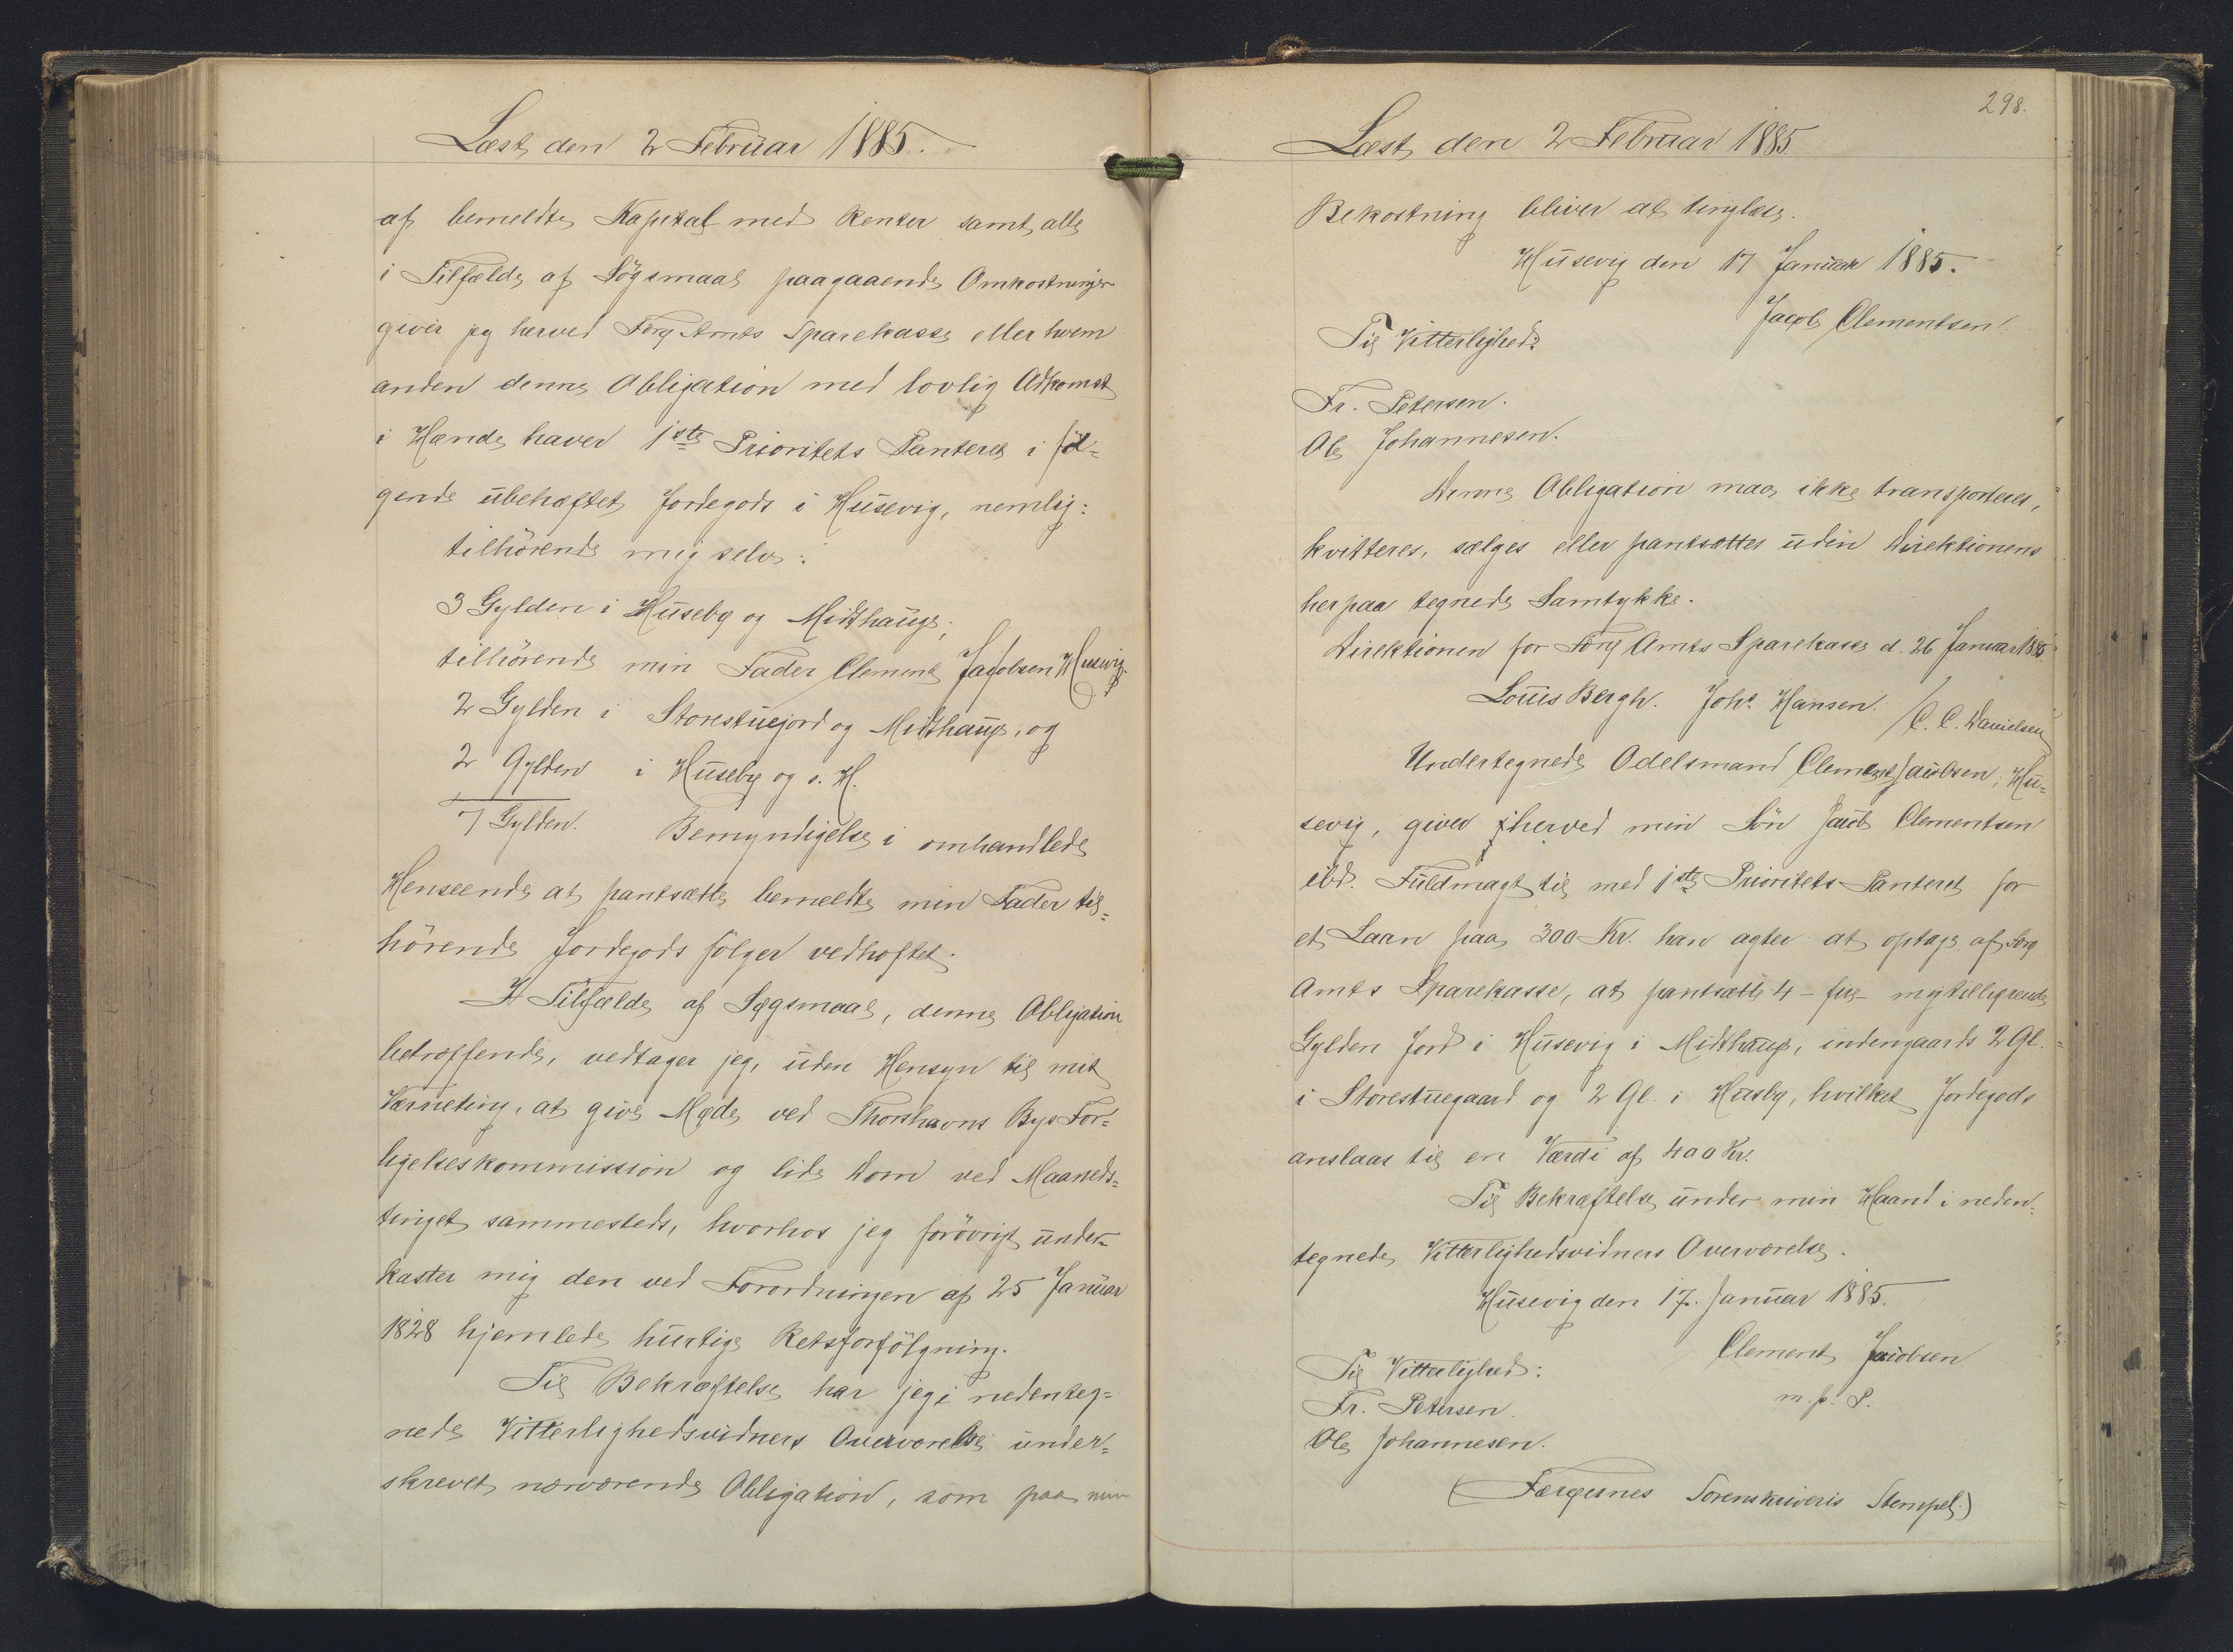 Læst den 2 Februar 1885.
af bemeldte Kapital med Renter samt alle
i Tilfælde af Søgsmaal paagaaende Omkostninger
giver jeg herved Færø Amts Sparekasse eller hvem
anden denne Obligation med lovlig Adkomst
i Hænde haver 1ste Prioritets Panteret i föl=
gende ubehæftet Jordegods i Husevig, nemlig:
tilhörende mig selv:
3 Gylden i Huseby og Midthauge;
tilhörende min Fader Clement Jacobsen Husevig:
2 Gylden i Storestuejord og Midthauge, og
2 Gylden i Huseby og o. H.
7 Gylden. Bemyndigelse i omhandlede
Henseende at pantsætte bemeldte min Fader til=
hörende Jordegods fölger vedhæftet.
I Tilfælde af Søgsmaal, denne Obligation
betræffende, vedtager jeg, uden Hensyn til mit
Værneting, at give Møde ved Thorshavns Byes For=
ligelseskommission og lide Dom ved Maaneds=
tinget sammesteds, hvorhos jeg forövrigt under=
kaster mig den ved Forordningen af 25 Januar
1828 hjemlede hurtige Retsforfölgning.
Til Bekræftelse har jeg i nedenteg=
nede Vitterlighedsvidners Overværelse under=
skrevet nærværende Obligation, som paa min
298.
Læst den 2 Februar 1885
Bekostning bliver at tinglæse.
Husevig den 17 Januar 1885.
Jacob Clementsen.
Til Vitterlighed:
Fr. Petersen.
Ole Johannesen.
Denne Obligation maa ikke transporteres,
kvitteres, sælges eller pantsættes uden Direktionens
herpaa tegnede Samtykke.
Direktionen for Færø Amts Sparekasse d. 26 Januar 1885
Louis Bergh. Johs. Hansen. C. C. Danielsen
Undertegnede Odelsmand Clement Jacobsen, Hu=
sevig, giver herved min Sön Jacob Clementsen
ibd. Fuldmagt til med 1ste Prioritets Panteret for
et Laan paa 300 Kr. han agter at optage af Færø
Amts Sparekasse, at pantsætte 4 - fire - mig tilhørende
Gylden Jord i Husevig i Midthauge, indengaards 2 Gl.
i Storestuegaard og 2 Gl. i Husby, hvilket Jordegods
anslaas til en Værdi af 400 Kr.
Til Bekræftelse under min Haand i neden=
tegnede Vitterlighedsvidners Overværelse.
Husevig den 17. Januar 1885.
Clement Jacobsen
m. p. P.
Til Vitterlighed:
Fr. Petersen.
Ole Johannesen.
(Færøernes Sorenskriveris Stempel.)